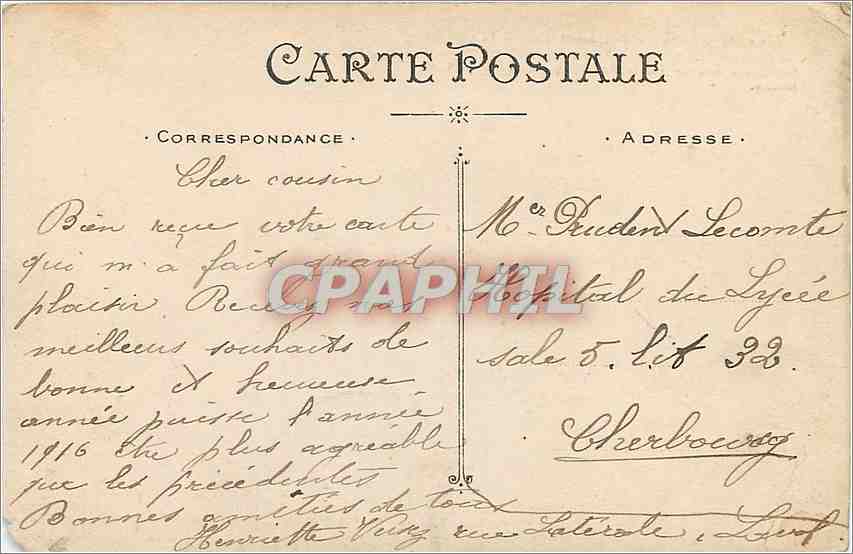 CARTE POSTALE
· CORRESPONDANCE ·
Cher cousin
Bien reçue votre carte
qui m'a fait grand
plaisir. Recevez nos
meilleurs souhaits de
bonne et heureuse
année puisse l'année
1916 être plus agréable
que les précédentes
Bonnes amitiés de tous
Henriette rue Latérale, Laval
· ADRESSE ·
Mer Prudent Lecomte
Hôpital du Lycée
sale 5. lit 32.
Cherbourg
CPAPHIL